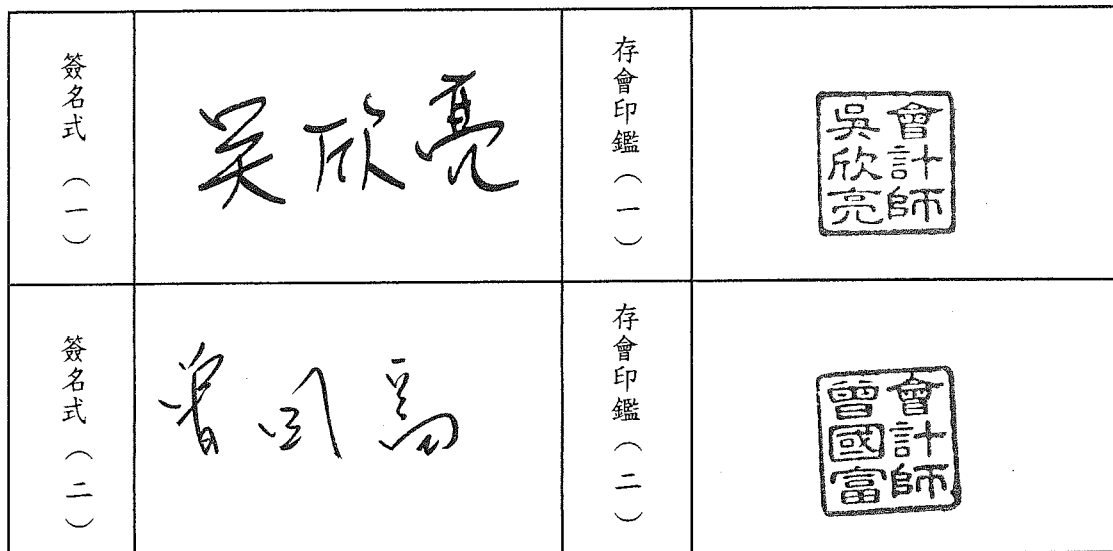 簽名式（一）
吳欣亮
存會印鑑（一）
會計師
吳欣亮
簽名式（二）
曾國富
存會印鑑（二）
會計師
曾國富